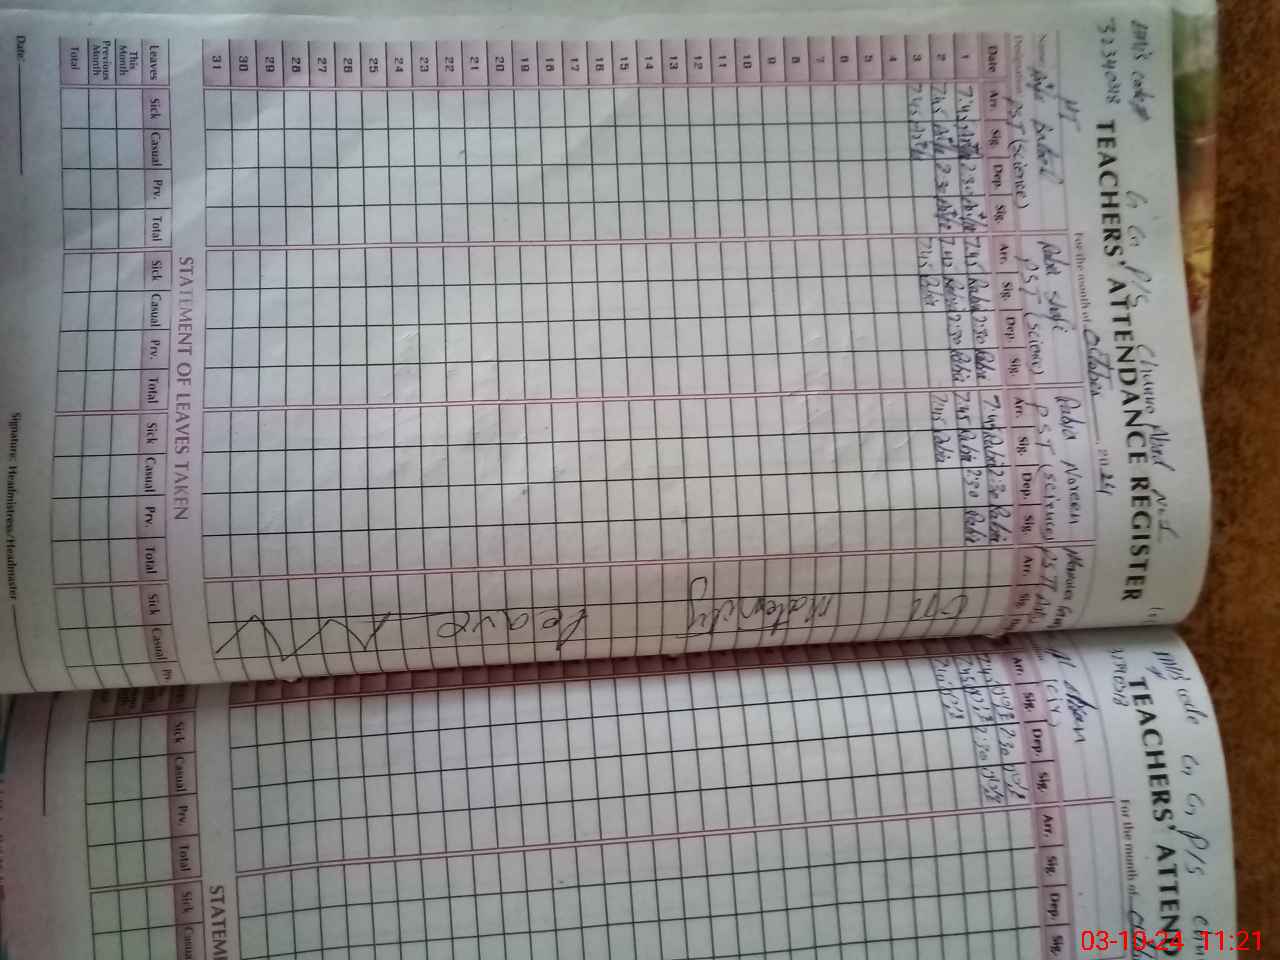 EMIS code
32340018
G G P/S Channo Mand No 1
TEACHERS' ATTENDANCE REGISTER
For the month of October, 2024
Name Batool Rabia Shafi Rabia Noreen
Designation PST (Science) PST (Science) PST (Science)
Date Arr. Sig. Dep. Sig. Arr. Sig. Dep. Sig. Arr. Sig. Dep. Sig. Arr. Sig.
1 7:45 2:30 7:45 Rabia 2:30 Rabia 7:45 Rabia 2:30 Rabia
2 7:45 2:30 7:45 Rabia 2:30 Rabia 7:45 Rabia 2:30 Rabia
3 7:45 7:45 Rabia 7:45 Rabia
4
5
6
7
8
9
10
11
12
13
14
15
16
17
18
19
20
21
22
23
24
25
26
27
28
29
30
31
On
Maternity
Leave
STATEMENT OF LEAVES TAKEN
Leaves Sick Casual Prv. Total Sick Casual Prv. Total Sick Casual Prv. Total Sick Casual Prv.
This Month
Previous Month
Total
Date:
Signature: Headmistress/Headmaster
EMIS code G G P/S
TEACHERS' ATTEND
For the month of
Arr. Sig. Dep. Sig. Arr. Sig. Dep. Sig.
7:45 2:30
7:45 2:30
7:45
STATEM
Sick Casual Prv. Total Sick Casua
03-10-24 11:21